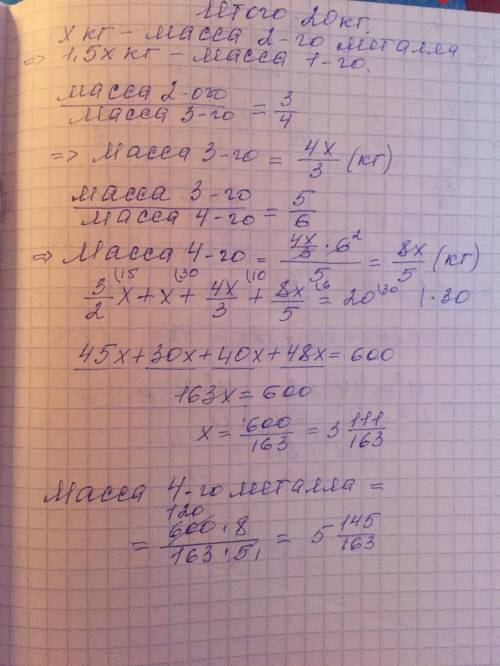 Итого 20кг.
x кг – масса 2-го металла
⇒ 1,5x кг – масса 1-го.
масса 2-ого / масса 3-го = 3/4
⇒ масса 3-го = 4x/3 (кг)
масса 3-го / масса 4-го = 5/6
⇒ масса 4-го = (4x/3 · 6²)/5 = 8x/5 (кг)
3/2 (15 x + x (30 + 4x/3 (10 + 8x/5 (6 = 20 (30 | · 30
45x + 30x + 40x + 48x = 600
163x = 600
x = 600/163 = 3 111/163
Масса 4-го металла =
120
= 600 · 8 / 163 · 5 = 5 145/163